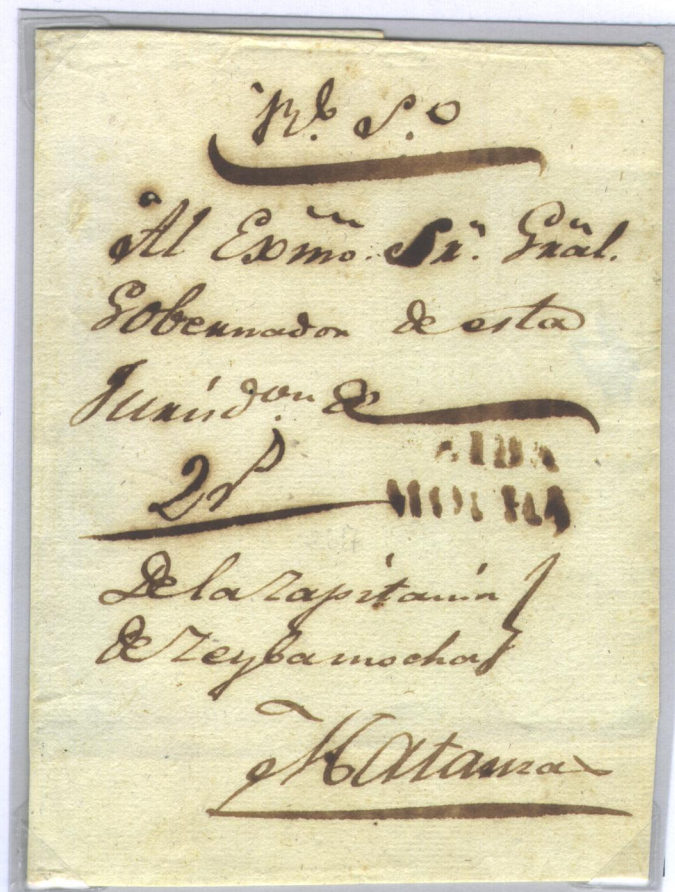 Rl. S. O
Al Exmo. Sr. Gral.
Gobernador de esta
Jurisdon. &
2 rs
CEIBA
MOCHA
De la Capitania
de Ceyba mocha
Matanzas